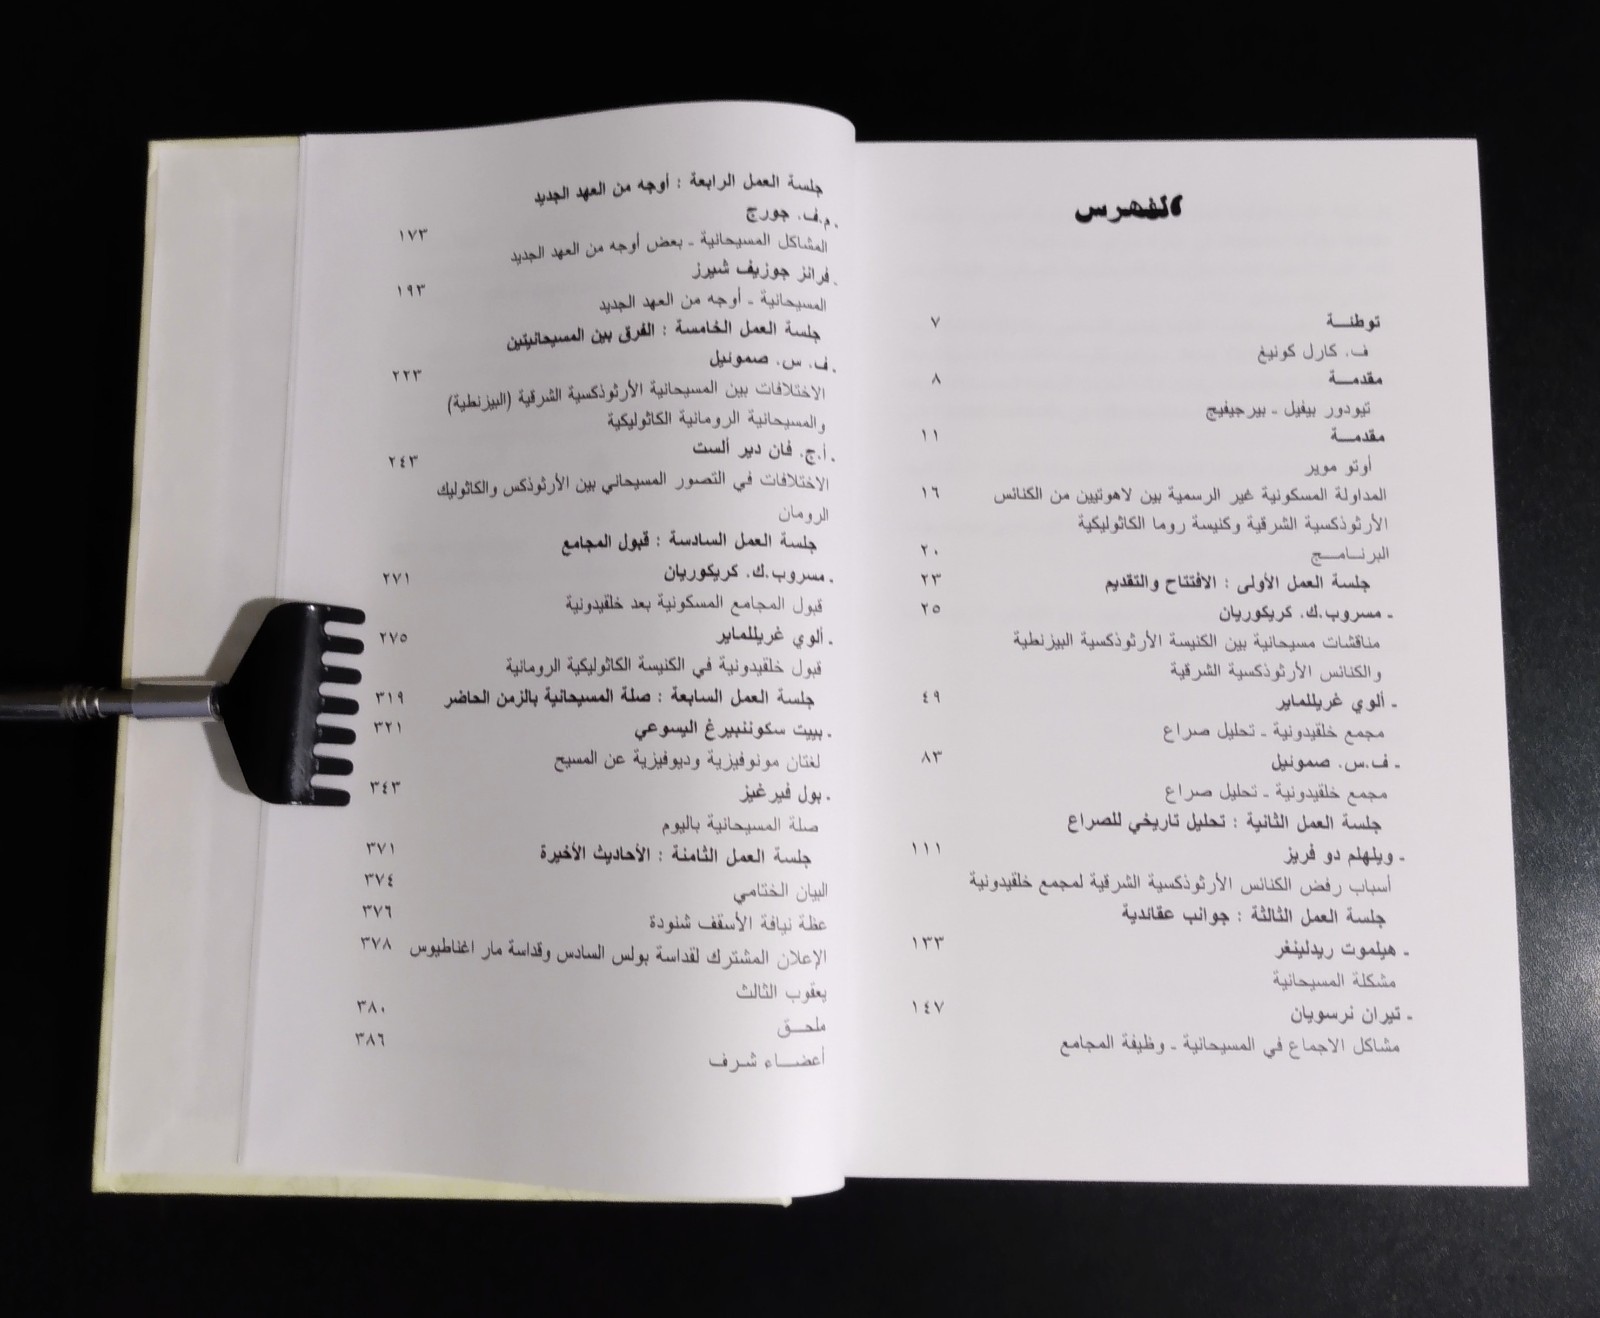 الفهرس
توطئـــة ٧
ف. كارل كونيغ
مقدمـــة ٨
تيودور بيفيل ـ بيرجيفيج
مقدمـــة ١١
أوتو موير
المداولة المسكونية غير الرسمية بين لاهوتيين من الكنائس ١٦
الأرثوذكسية الشرقية وكنيسة روما الكاثوليكية
البرنامــــج ٢٠
جلسة العمل الأولى : الافتتاح والتقديم ٢٣
ـ مسروب.ك. كريكوريان ٢٥
مناقشات مسيحانية بين الكنيسة الأرثوذكسية البيزنطية
والكنائس الأرثوذكسية الشرقية
ـ ألوي غريللماير ٤٩
مجمع خلقيدونية ـ تحليل صراع
ـ ف.س. صموئيل ٨٣
مجمع خلقيدونية ـ تحليل صراع
جلسة العمل الثانية : تحليل تاريخي للصراع
ـ ويلهلم دو فريز ١١١
أسباب رفض الكنائس الأرثوذكسية الشرقية لمجمع خلقيدونية
جلسة العمل الثالثة : جوانب عقائدية
ـ هيلموت ريدلينغر ١٣٣
مشكلة المسيحانية
ـ تيران نرسويان ١٤٧
مشاكل الاجماع في المسيحانية ـ وظيفة المجامع
جلسة العمل الرابعة : أوجه من العهد الجديد
ـ م.ف. جورج ١٧٣
المشاكل المسيحانية ـ بعض أوجه من العهد الجديد
ـ فرانز جوزيف شيرز ١٩٣
المسيحانية ـ أوجه من العهد الجديد
جلسة العمل الخامسة : الفرق بين المسيحانيتين
ـ ف. س. صموئيل ٢٢٣
الاختلافات بين المسيحانية الأرثوذكسية الشرقية (البيزنطية)
والمسيحانية الرومانية الكاثوليكية
ـ أ.ج. فان دير ألست ٢٤٣
الاختلافات في التصور المسيحاني بين الأرثوذكس والكاثوليك
الرومان
جلسة العمل السادسة : قبول المجامع
ـ مسروب.ك. كريكوريان ٢٧١
قبول المجامع المسكونية بعد خلقيدونية
ـ ألوي غريللماير ٢٧٥
قبول خلقيدونية في الكنيسة الكاثوليكية الرومانية
جلسة العمل السابعة : صلة المسيحانية بالزمن الحاضر ٣١٩
ـ بييت سكوننبيرغ اليسوعي ٣٢١
لغتان مونوفيزية وديوفيزية عن المسيح
ـ بول فيرغيز ٣٤٣
صلة المسيحانية باليوم
جلسة العمل الثامنة : الأحاديث الأخيرة ٣٧١
البيان الختامي ٣٧٤
عظة نيافة الأسقف شنودة ٣٧٦
الإعلان المشترك لقداسة بولس السادس وقداسة مار اغناطيوس ٣٧٨
يعقوب الثالث
ملحـــق ٣٨٠
أعضـــاء شرف ٣٨٦